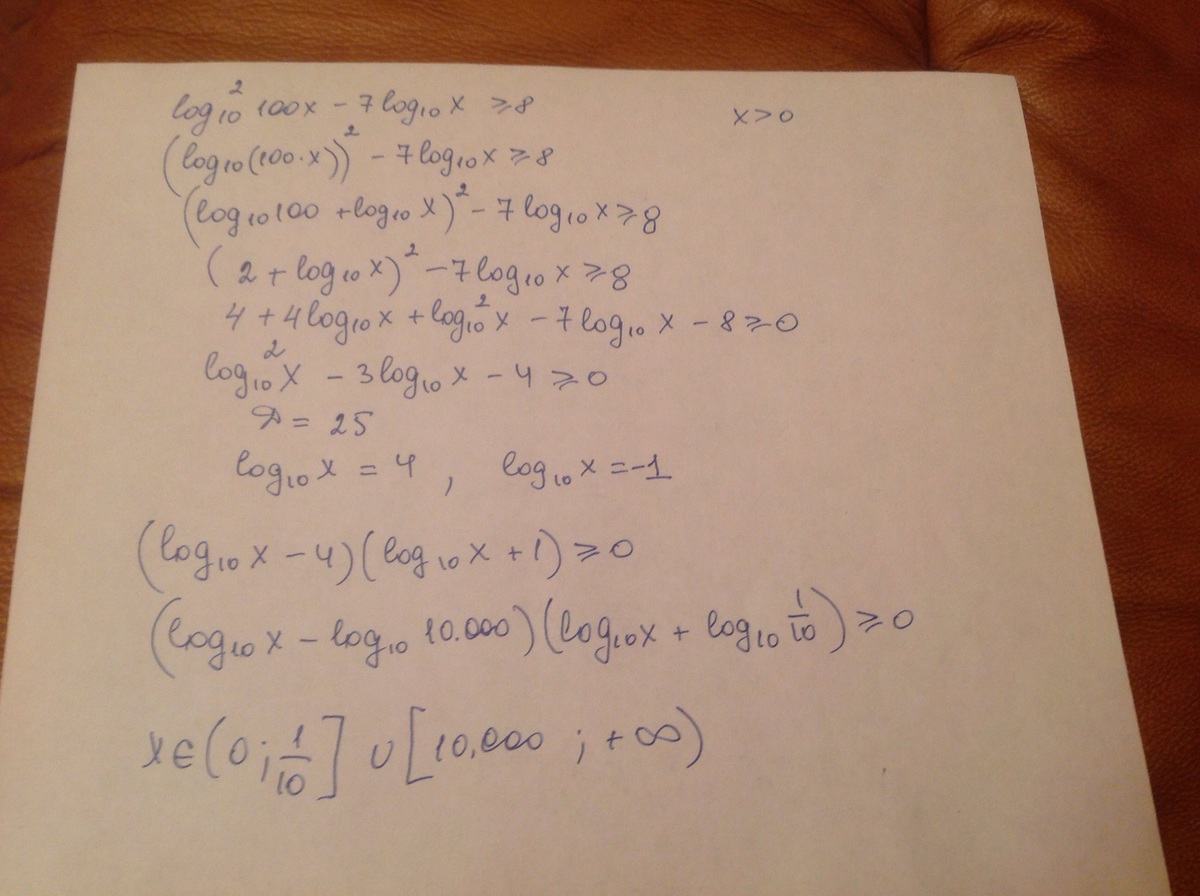 log₁₀² 100x − 7 log₁₀ x ⩾ 8 x > 0
(log₁₀(100·x))² − 7 log₁₀ x ⩾ 8
(log₁₀ 100 + log₁₀ x)² − 7 log₁₀ x ⩾ 8
(2 + log₁₀ x)² − 7 log₁₀ x ⩾ 8
4 + 4 log₁₀ x + log₁₀² x − 7 log₁₀ x − 8 ⩾ 0
log₁₀² x − 3 log₁₀ x − 4 ⩾ 0
D = 25
log₁₀ x = 4 , log₁₀ x = −1
(log₁₀ x − 4)(log₁₀ x + 1) ⩾ 0
(log₁₀ x − log₁₀ 10.000)(log₁₀ x + log₁₀ 1/10) ⩾ 0
x ∈ (0 ; 1/10] ∪ [10.000 ; +∞)